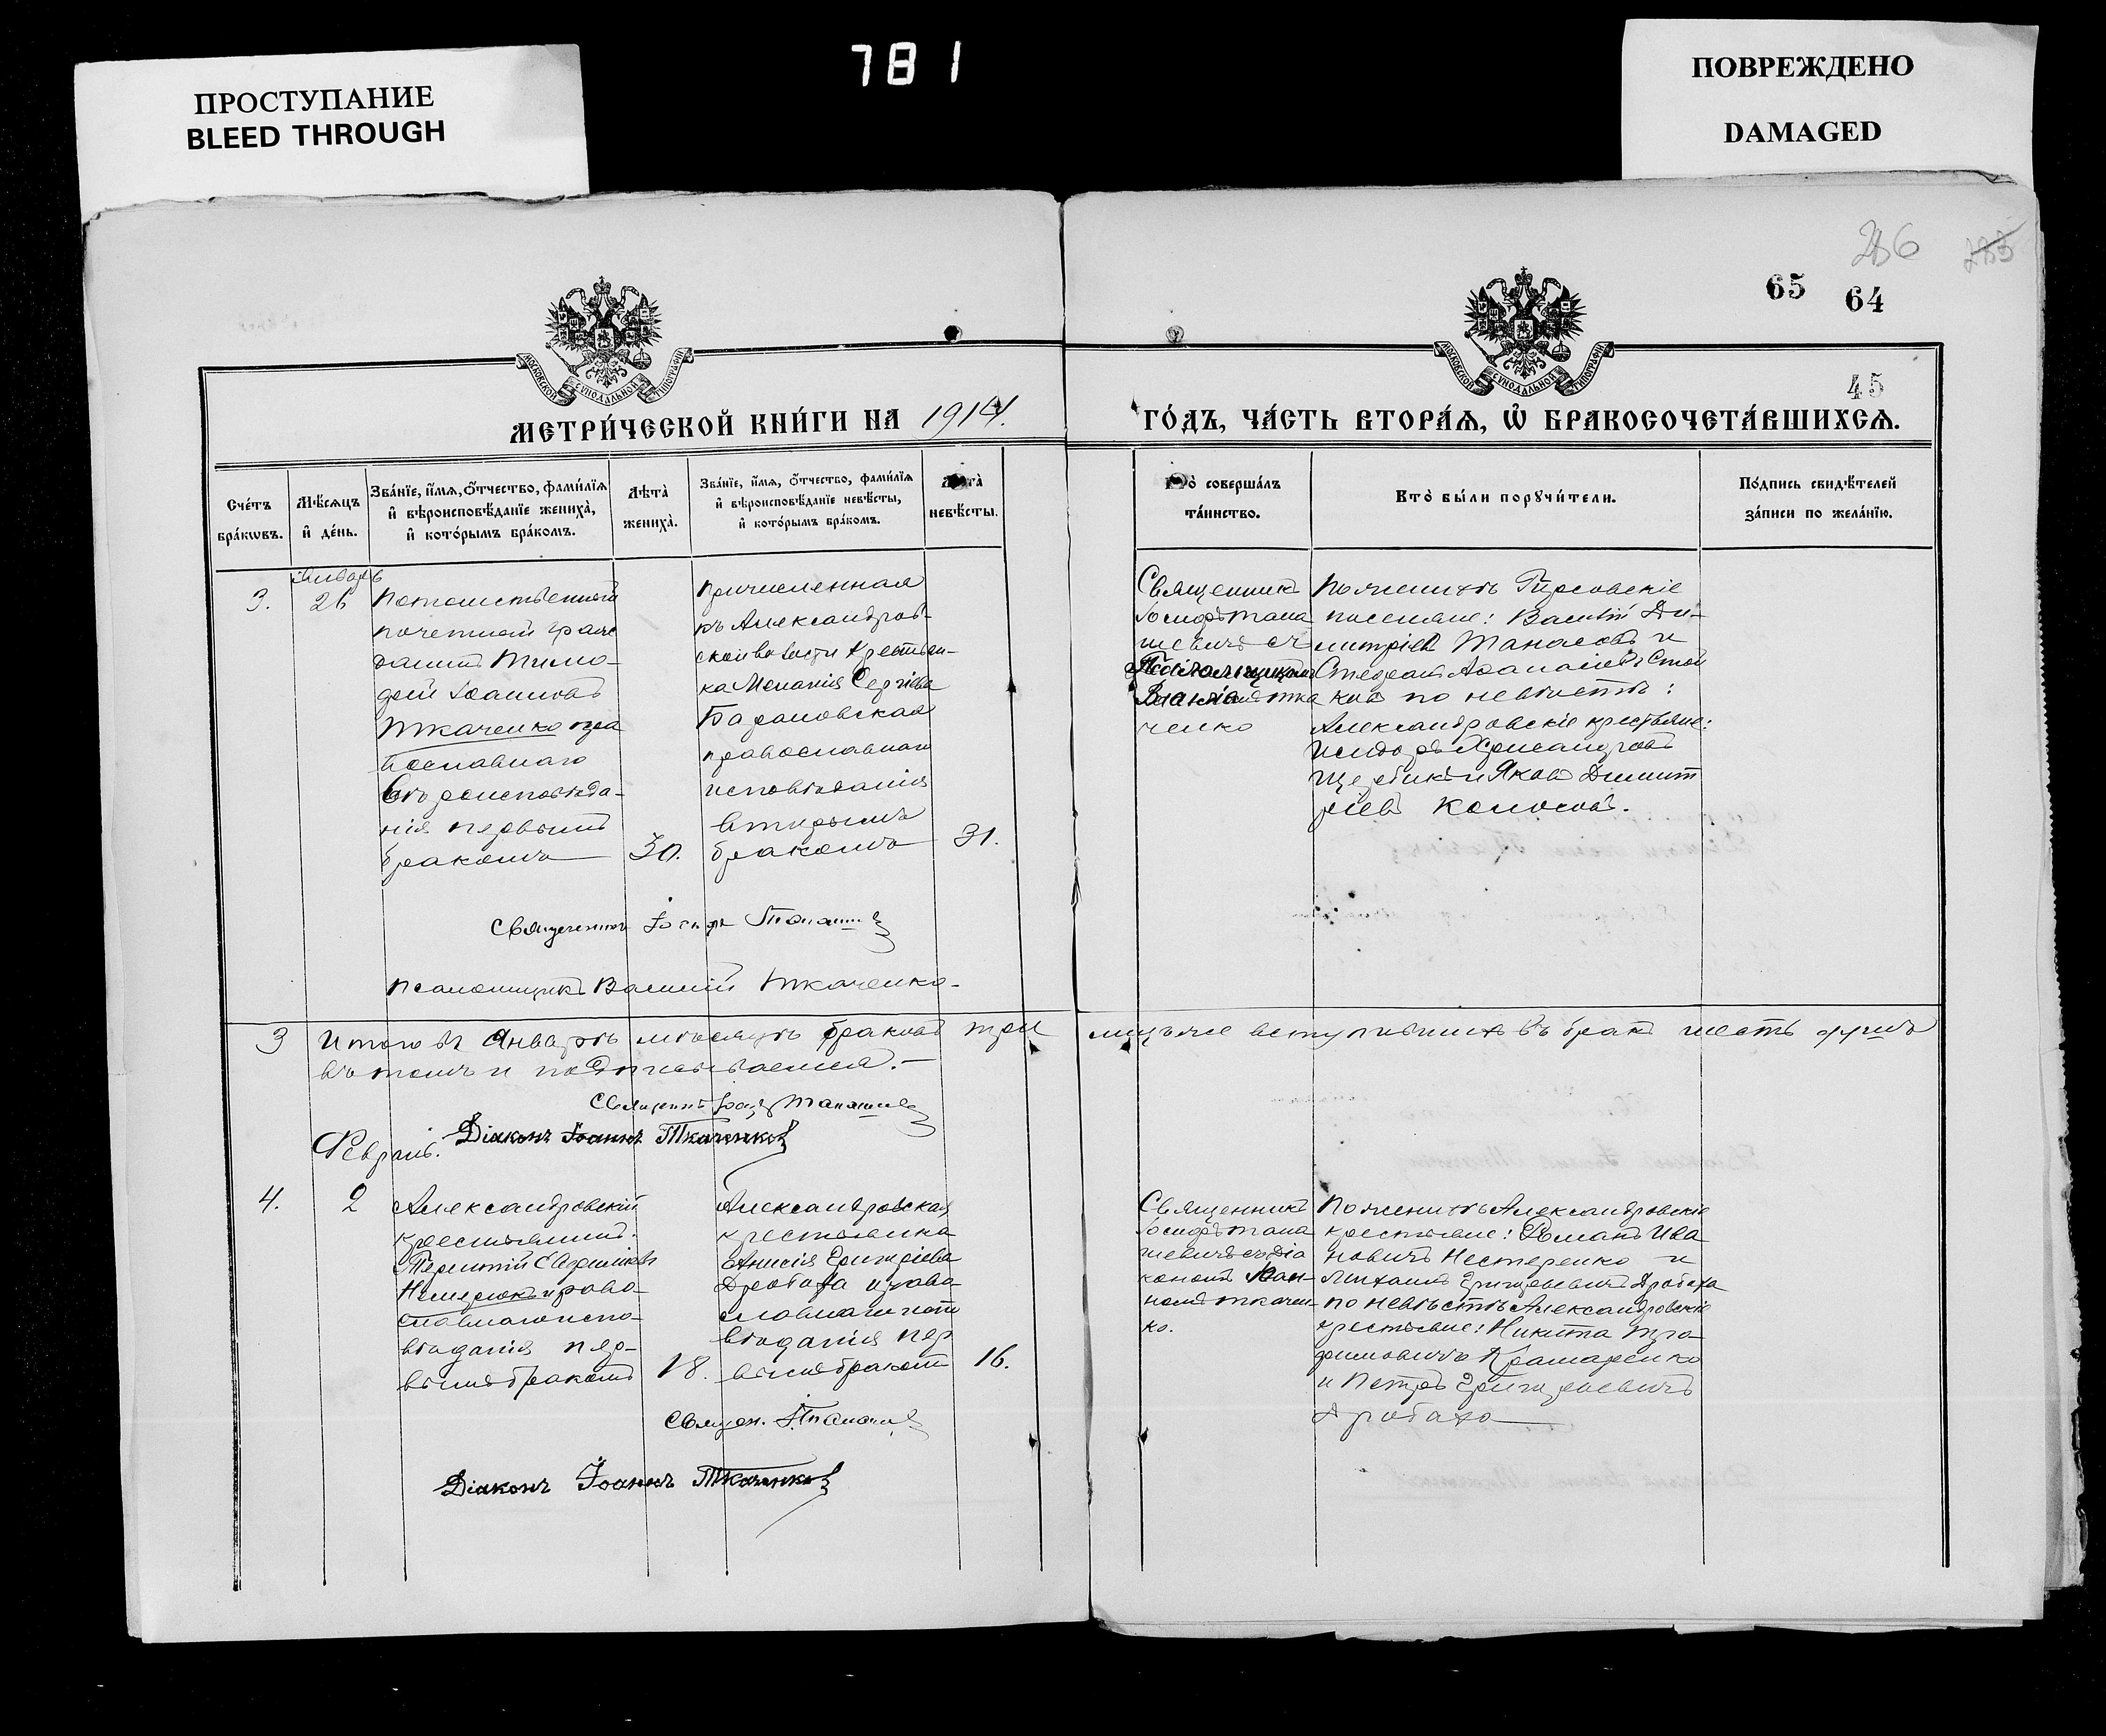 ПРОСТУПАНИЕ
BLEED THROUGH
781
ПОВРЕЖДЕНО
DAMAGED
286
283
65
64
45
МОСКОВСКОЙ СѴНОДАЛЬНОЙ ТИПОГРАФІИ
МОСКОВСКОЙ СѴНОДАЛЬНОЙ ТИПОГРАФІИ
МЕТРИ́ЧЕСКОЙ КНИ́ГИ НА 1914.
ГО́ДЪ, ЧА́СТЬ ВТОРА́Ѧ, Ѡ҆ БРАКОСОЧЕТА́ВШИХСѦ.
Сче́тъ
бра́кѡвъ.
Мѣ́сѧцъ
и҆ де́нь.
Зва́нїе, и҆́мѧ, ѻ҆́тчество, фами́лїѧ
и҆ вѣроисповѣ́данїе жениха̀,
и҆ кото́рымъ бра́комъ.
Лѣта̀
жениха̀.
Зва́нїе, и҆́мѧ, ѻ҆́тчество, фами́лїѧ
и҆ вѣроисповѣ́данїе невѣ́сты,
и҆ кото́рымъ бра́комъ.
Лѣта̀
невѣ́сты.
Кто̀ соверша́лъ
та́инство.
Кто̀ бы́ли порꙋчи́тели.
По́дпись свидѣ́телей
за́писи по жела́нїю.
3.
Январь
26
Потомственный
почетный граж
данинъ Тимо-
фей Іоанновъ
Ткаченко пра
вославнаго
вѣроисповѣда-
нія первымъ
бракомъ
30.
Причисленная
къ Александров-
ской волости крестьян-
ка Меланія Сергіева
Барановская
православнаго
исповѣданія
вторымъ
бракомъ
31.
Священникъ
Іосифъ Тана
шевичъ съ
Псаломщикомъ
Ткa
ченко
По женихѣ Тирсовскіе
поселяне: Василій Ди-
митріев Танасовъ и
Стефанъ Аѳанасіевъ Стой
ковъ по невѣстѣ:
Александровскіе крестьяне:
Исидоръ Хрисанфовъ
Щербина и Яковъ Димит
ріевъ Колосовъ.
Священникъ Іосифъ Танашевичъ
Псаломщикъ Василій Ткаченко
3
Итого въ Январѣ мѣсяцѣ браковъ три лицъ же вступившихъ въ бракъ шесть душъ
въ томъ и подписываемся.
Діаконъ Іоаннъ Ткаченко
Февраль.
4.
2
Александровскій
крестьянинъ
Терентій Евфиміевъ
право-
славнаго испо-
вѣданія пер-
вымъ бракомъ
18.
Александровская
крестьянка
Анисія Григоріева
Дробаха право-
славнаго испо
вѣданія пер
вымъ бракомъ
16.
Священникъ
Іосифъ Тана
шевичъ съ Діа
кономъ Іоан-
номъ Ткачен-
ко.
По женихѣ Александровскіе
крестьяне: Романъ Ива
новичъ Нестеренко и
Михаилъ Григорьевичъ Дробаха
по невѣстѣ Александровскіе
крестьяне: Никита Тро
фимовичъ Крамаренко
и Петръ Григорьевичъ
Дробаха
Священ. І. Танашевичъ
Діаконъ Іоаннъ Ткаченко